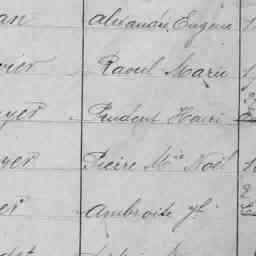 an Alexandre Eugène 1
vier Raoul Marie 1
yer Prudent Henri
yer Pierre Mie Noël 1
er Ambroise Jh